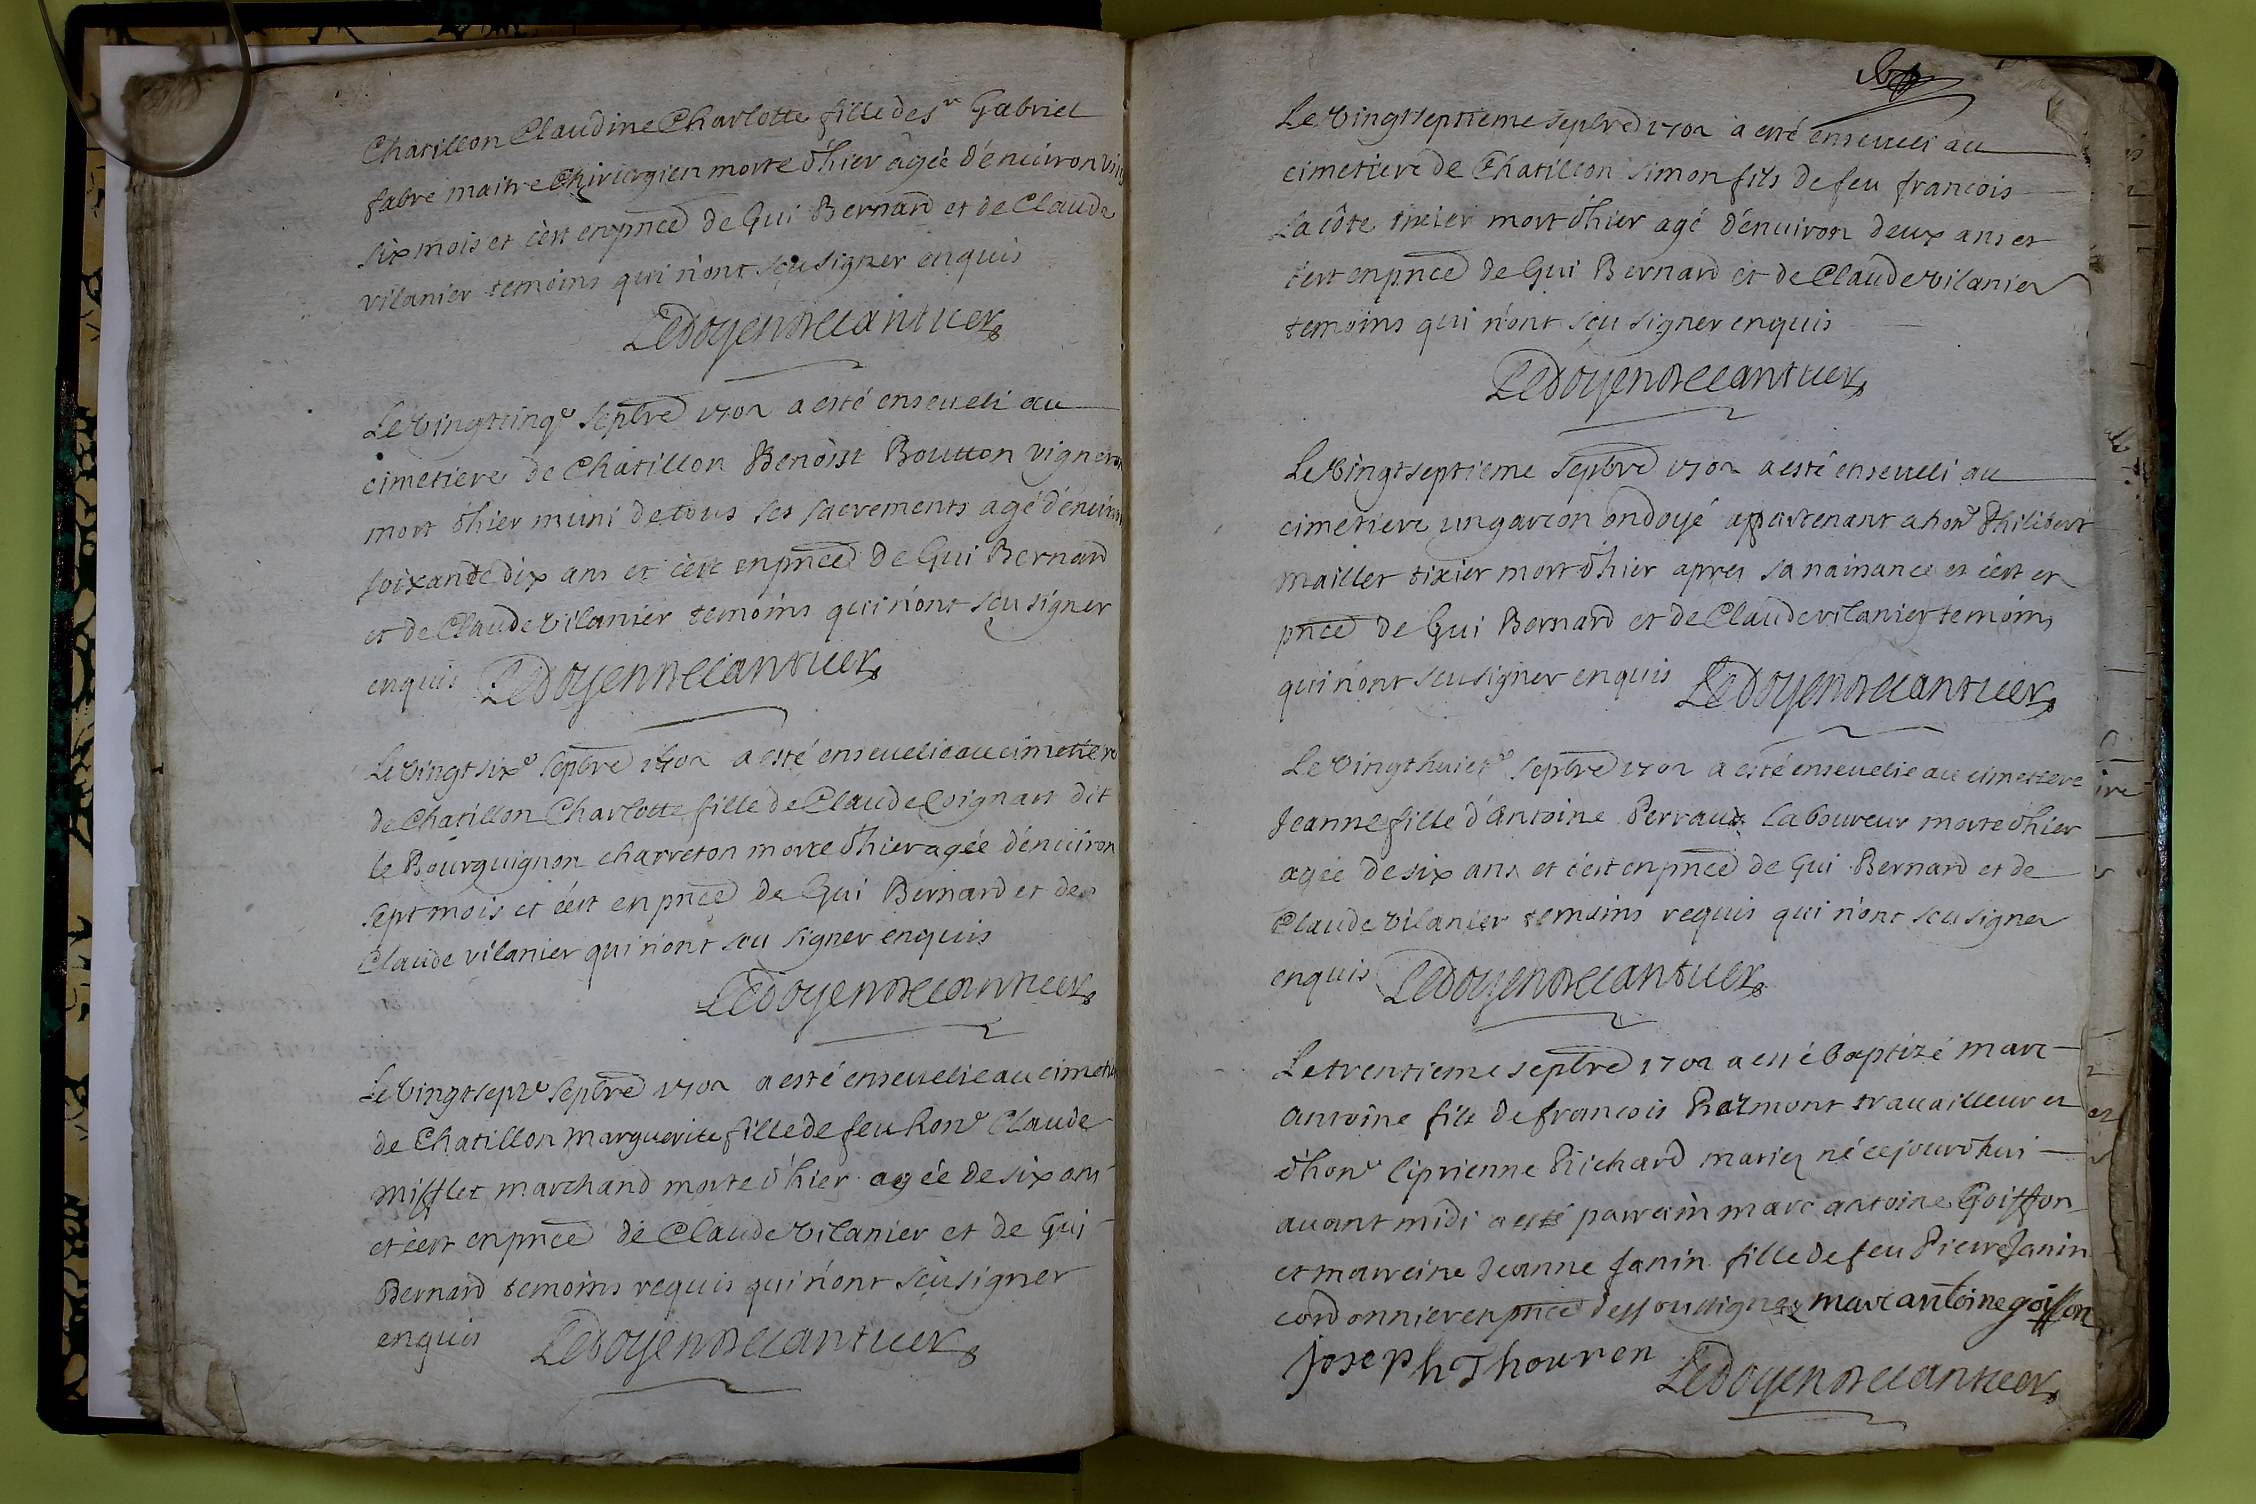 Chatillon Claudine Charlotte fille de sr Gabriel
fabre maitre Chirurgien morte d'hier agée d'enuiron
six mois et c'est en pnce de Gui Bernard et de Claude
vilanier temoins qui n'ont sçu signer enquis
Ledoyen
Le vingtcinqe sepbre 1702 a esté enseueli au
cimetiere de Chatillon Benoist Boutton vigneron
mort d'hier muni de tous ses sacrements agé d'enuiron
soixante dix ans et c'est en pnce de Gui Bernard
et de Claude vilanier temoins qui n'ont sçu signer
enquis Ledoyen
Le vingt sixe sepbre 1702 a esté enseuelie au cimetiere
de Chatillon Charlotte fille de Claude Coignart dit
le Bourguignon charreton morte d'hier agée d'enuiron
sept mois et c'est en pnce de Gui Bernard et de
Claude vilanier qui n'ont scu signer enquis
Ledoyen
Le vingtsepte sepbre 1702 a esté enseuelie au cimetiere
de Chatillon Marguerite fille de feu hone Claude
Mifflet marchand morte d'hier agée de six ans
et c'est en pnce de Claude vilanier et de Gui
Bernard temoins requis qui n'ont sçu signer
enquis Ledoyen
Le vingtseptieme sepbre 1702 a esté enseueli au
cimetiere de Chatillon simon fils de feu francois
la côte tixier mort d'hier agé d'enuiron deux ans et
c'est en pnce de Gui Bernard et de Claude vilanier
temoins qui n'ont sçu signer enquis
Ledoyen
Le vingtseptieme sepbre 1702 a esté enseueli au
cimetiere un garcon ondoyé appartenant a hone Philibert
mailler tixier mort d'hier apres sa naissance et c'est en
pnce de Gui Bernard et de Claude vilanier temoins
qui n'ont scu signer enquis Ledoyen
Le vingthuicte sepbre 1702 a esté enseuelie au cimetiere
Jeanne fille d'Antoine Perraud laboureur morte d'hier
agée de six ans et c'est en pnce de Gui Bernard et de
Claude vilanier temoins requis qui n'ont scu signer
enquis Ledoyen
Le trentieme sepbre 1702 a esté baptizé marc
antoine fils de francois travailleur et
d'hone Ciprienne Richard mariez né cejourd'hui
auant midi a esté parrein marc antoine Goiffon
et marreine Jeanne Janin fille de feu Pierre Janin
cordonnier en pnce des soussignez marc antoine goiffon
Joseph Thouren Ledoyen